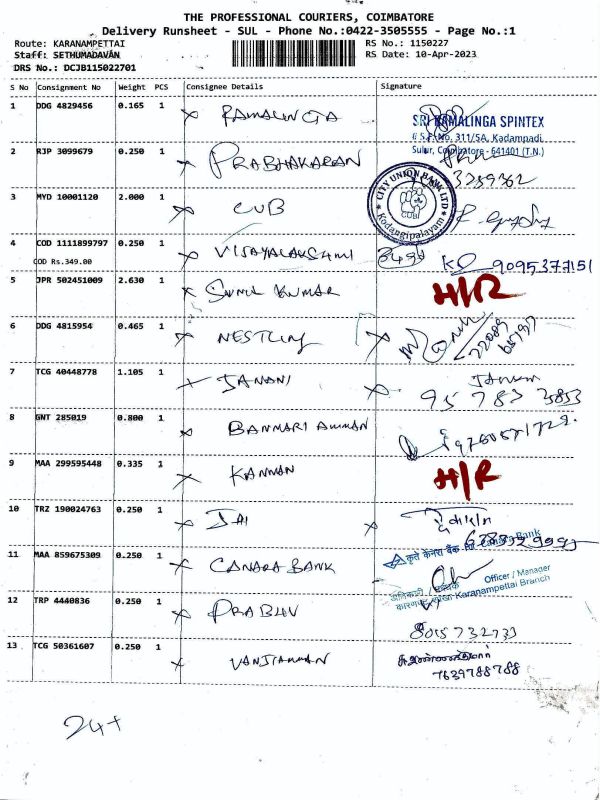 THE PROFESSIONAL COURIERS, COIMBATORE
Delivery Runsheet - SUL - Phone No.:0422-3505555 - Page No.:1
Route: KARANAMPETTAI
Staff: SETHUMADAVAN
DRS No.: DCJB115022701
RS No.: 1150227
RS Date: 10-Apr-2023
S No Consignment No Weight PCS Consignee Details Signature
1 DDG 4829456 0.165 1 RAMALINGA
SRI RAMALINGA SPINTEX
S.F.No. 311/5A, Kadampadi,
Sulur, Coimbatore - 641401 (T.N.)
2 RJP 3099679 0.250 1 PRABHAKARAN
3 MYD 10001120 2.000 1 CUB
CITY UNION BANK LTD
CUB
Kodangipalayam
4 COD 1111899797 0.250 1 VIJAYALAKSHMI 9095377151
COD Rs.349.00
5 JPR 502451009 2.630 1 SUNIL KUMAR H/R
6 DDG 4815954 0.465 1
7 TCG 40448778 1.105 1 JANANI
8 GNT 285019 0.800 1 BANMARI AMMAN
9 MAA 299595448 0.335 1 KANNAN H/R
10 TRZ 190024763 0.250 1 JAI
11 MAA 859675309 0.250 1 CANARA BANK
Bank
Officer / Manager
Karanampettai Branch
12 TRP 4440836 0.250 1 PRABHU
8015732733
13 TCG 50361607 0.250 1 VANJIAMMAN
7639788788
24+